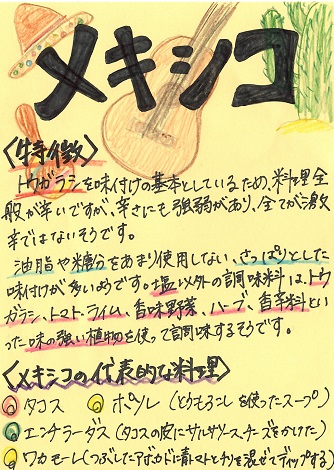 メキシコ
〈特徴〉
トウガラシを味付けの基本としているため、料理全
般が辛いですが、辛さにも強弱があり、全てが激
辛ではないそうです。
油脂や糖分をあまり使用しない、さっぱりとした
味付けが多いようです。塩以外の調味料は、トウ
ガラシ、トマト、ライム、香味野菜、ハーブ、香辛料とい
った味の強い植物を使って調味するそうです。
〈メキシコの代表的な料理〉
◎タコス ◎ポソレ(とうもろこしを使ったスープ)
◎エンチラーダス(タコスの皮にサルサソース、チーズをかけた)
◎ワカモーレ(つぶしたアボカドに青トマトとチリを混ぜてディップする)